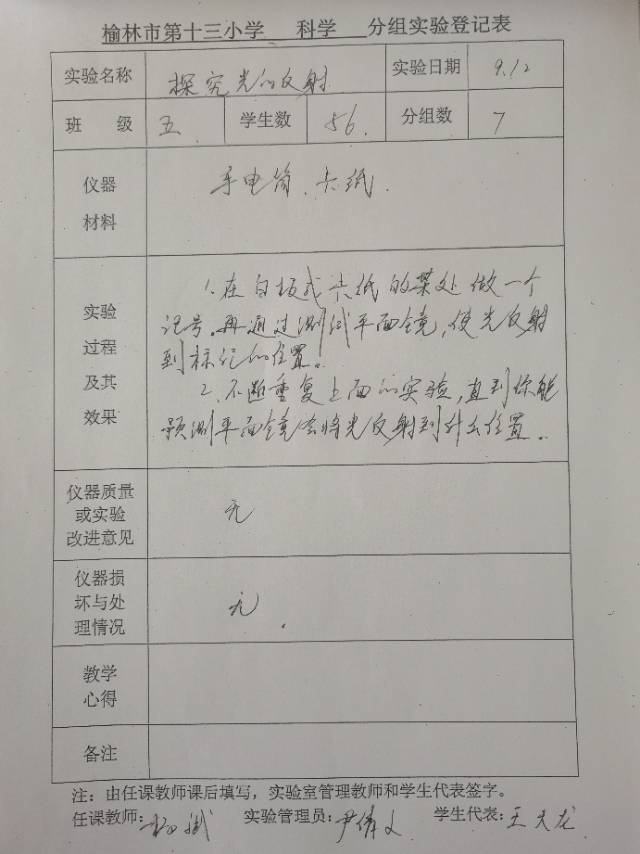 榆林市第十三小学 科学 分组实验登记表
实验名称 探究光的反射 实验日期 9.12
班级 五 学生数 56. 分组数 7
仪器材料 手电筒、卡纸.
实验过程及其效果
1.在白板或卡纸的某处做一个
记号。再通过测试平面镜,使光反射
到标记的位置。
2.不断重复上面的实验,直到你能
预测平面镜会将光反射到什么位置。
仪器质量或实验改进意见 无
仪器损坏与处理情况 无.
教学心得
备注
注:由任课教师课后填写,实验室管理教师和学生代表签字。
任课教师: 实验管理员: 尹倩文 学生代表: 王天龙